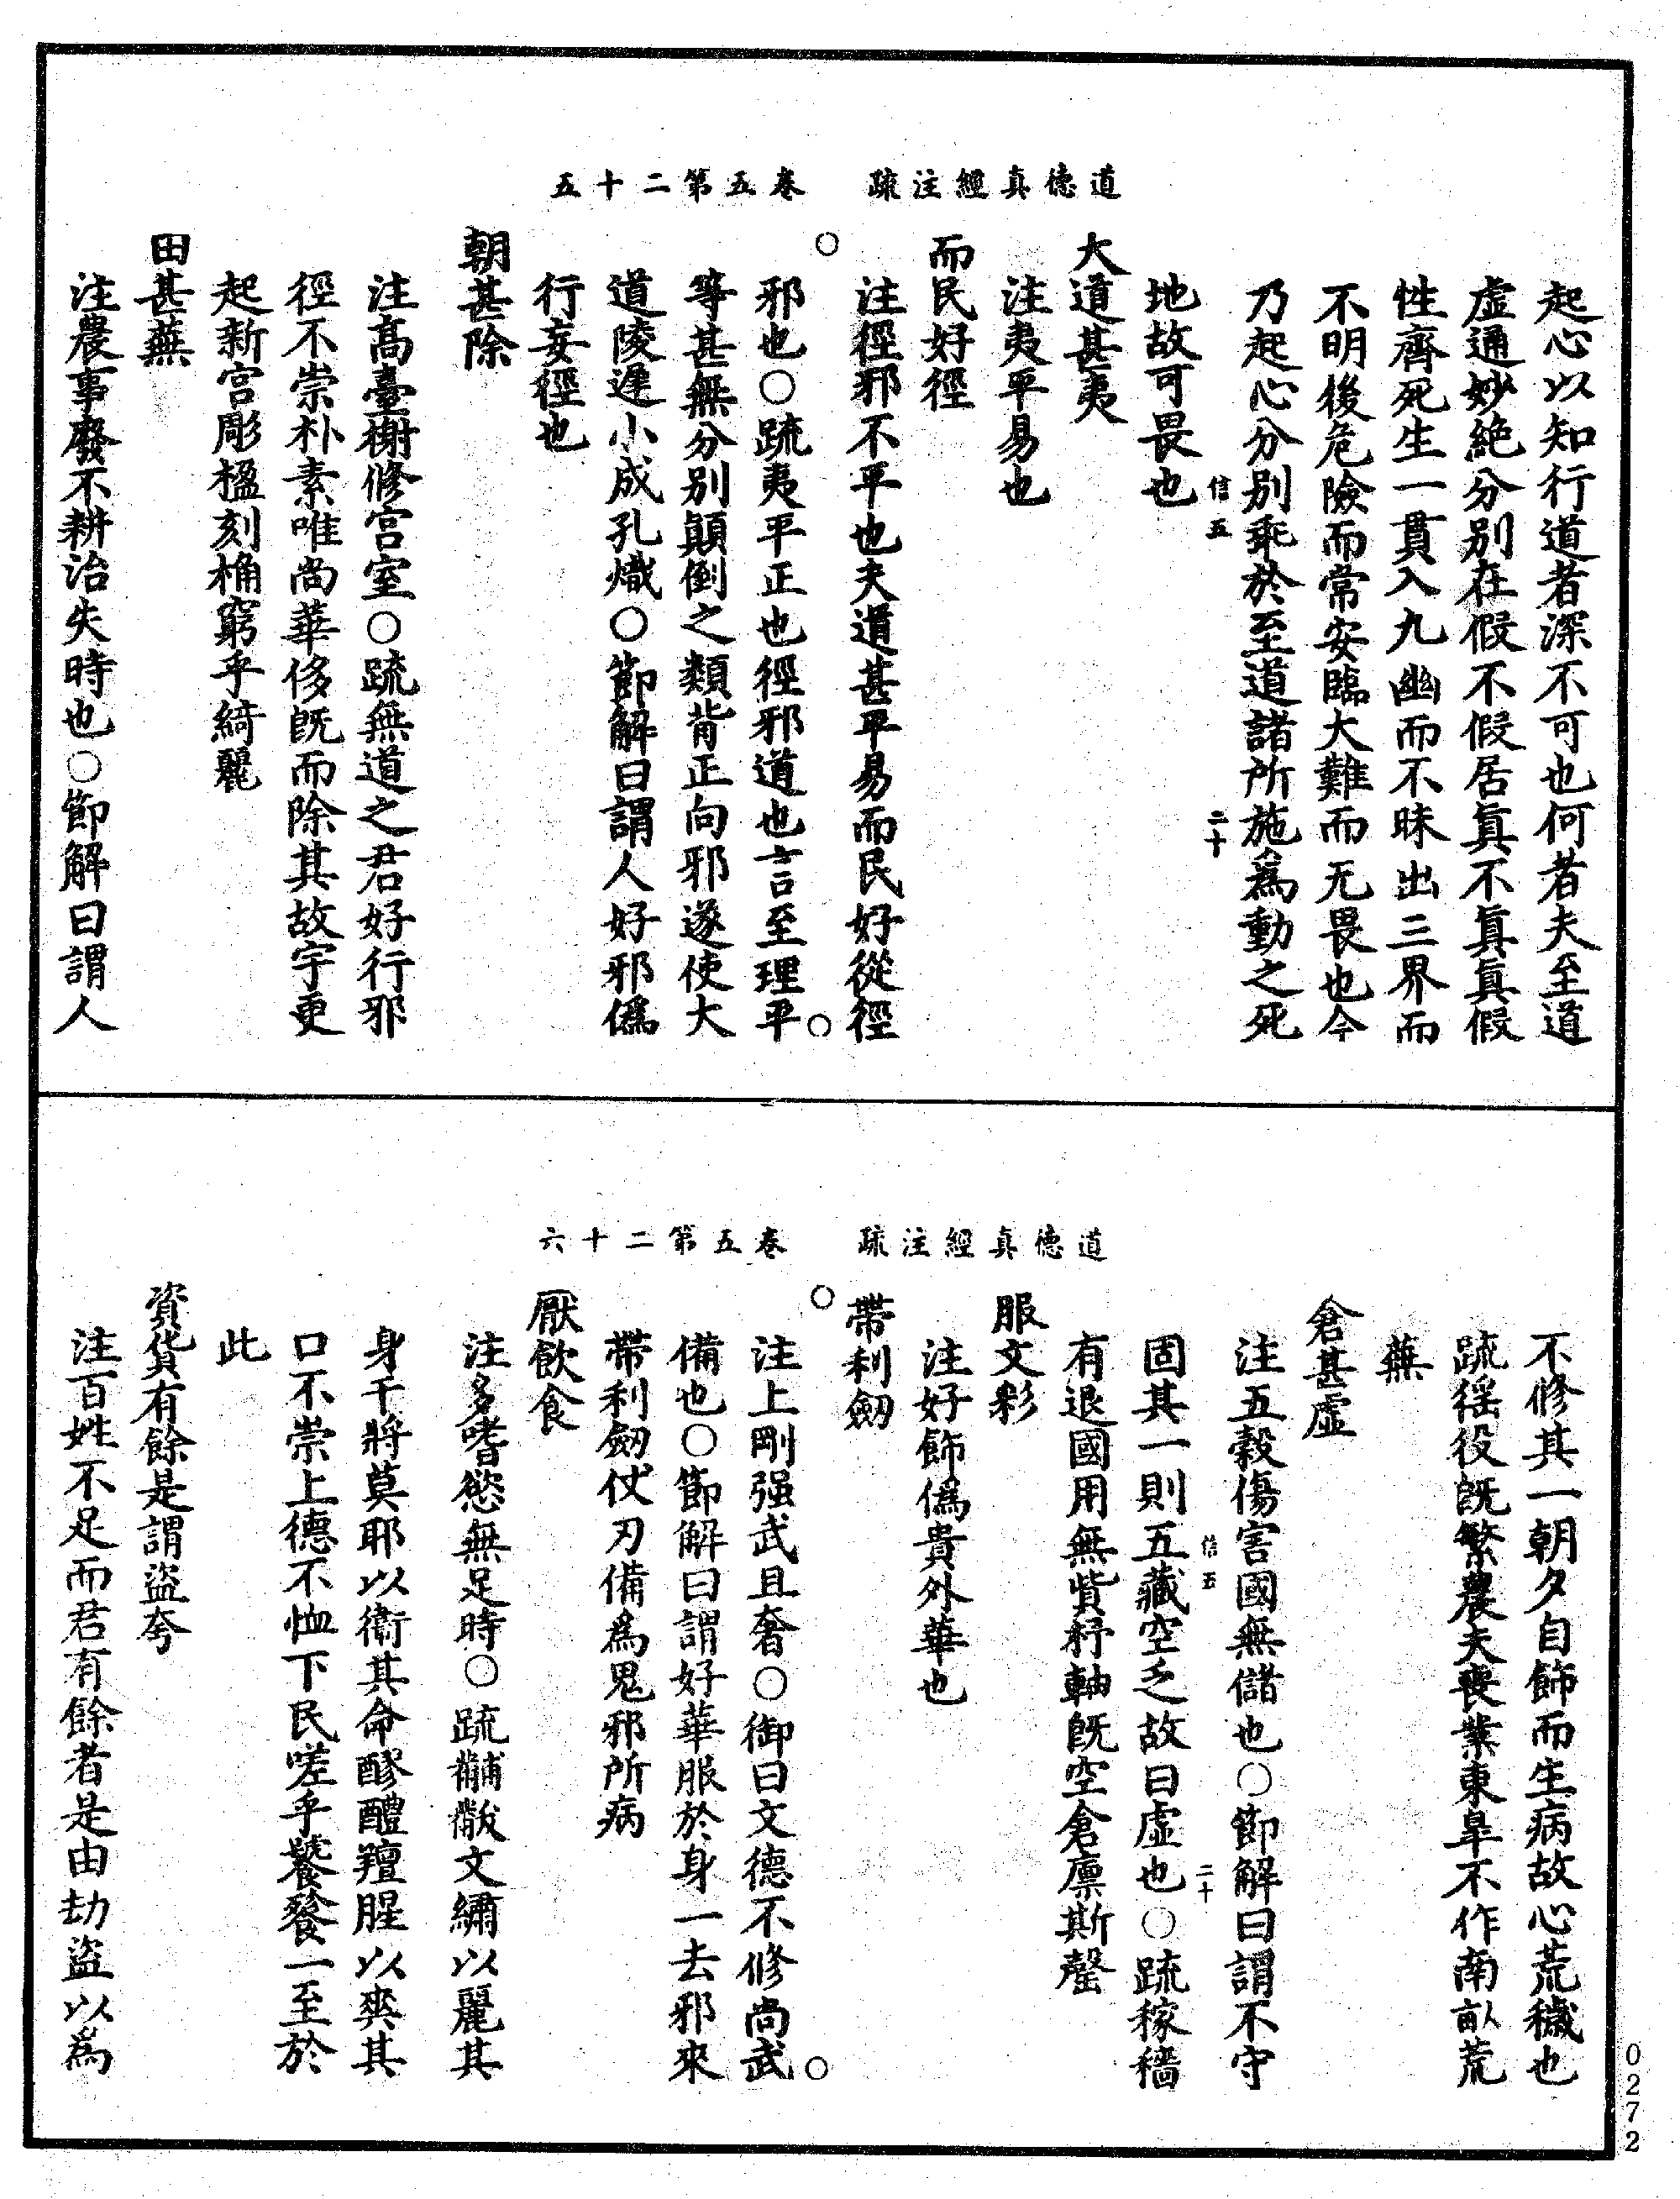 道德真經注疏　卷五第二十五
起心以知行道者深不可也何者夫至道
虛通妙絕分別在假不假居真不真真假
性齊死生一貫入九幽而不昧出三界而
不明後危險而常安臨大難而无畏也今
乃起心分別乖於至道諸所施爲動之死
信五　二十
地故可畏也
大道甚夷
注夷平易也
而民好徑
注徑邪不平也夫道甚平易而民好從徑
邪也○疏夷平正也徑邪道也言至理平
等甚無分別顛倒之類背正向邪遂使大
道陵遲小成孔熾○節解曰謂人好邪僞
行妄徑也
朝甚除
注高臺榭修宮室○疏無道之君好行邪
徑不崇朴素唯尚華侈既而除其故宇更
起新宮彫楹刻桷窮乎綺麗
田甚蕪
注農事廢不耕治失時也○節解曰謂人
道德真經注疏　卷五第二十六
不修其一朝夕自飾而生病故心荒穢也
疏徭役既繁農夫喪業東皐不作南畝荒
蕪
倉甚虛
注五穀傷害國無儲也○節解曰謂不守
信五　二十
固其一則五藏空乏故曰虛也○疏稼穡
有退國用無貲杼軸既空倉廩斯罄
服文彩
注好飾僞貴外華也
帶利劒
注上剛强武且奢○御曰文德不修尚武
備也○節解曰謂好華服於身一去邪來
帶利劒仗刃備爲鬼邪所病
厭飲食
注多嗜慾無足時○疏黼黻文繡以麗其
身干將莫耶以衞其命醪醴羶腥以爽其
口不崇上德不恤下民嗟乎饕餮一至於
此
資貨有餘是謂盜夸
注百姓不足而君有餘者是由劫盜以爲
0272